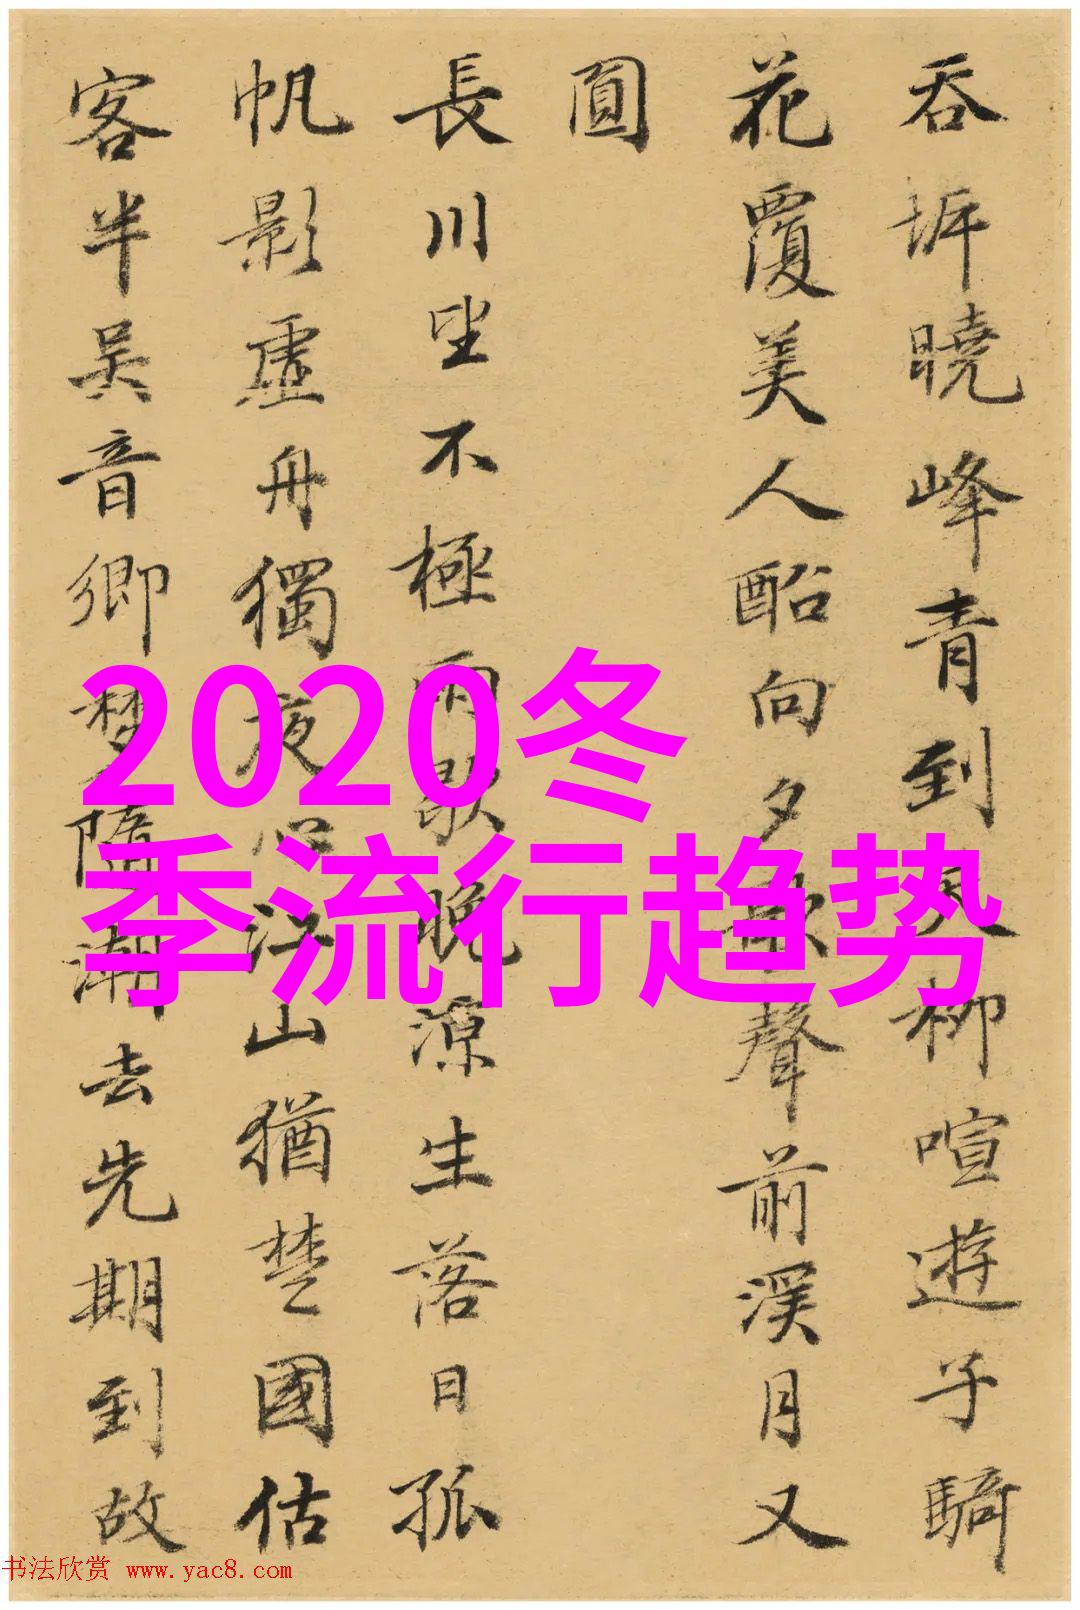 吞坼曉峰青到
柳喧遊子騎
花覆美人酩向夕歌聲前溪月又
圓
長川坐不極雨歇晚凉生落日孤
帆影虛舟獨夜心江山猶楚國估
客半吴音鄉夢隋潮去先期到故
2020冬
季流行趋势
书法欣赏 www.yac8.com